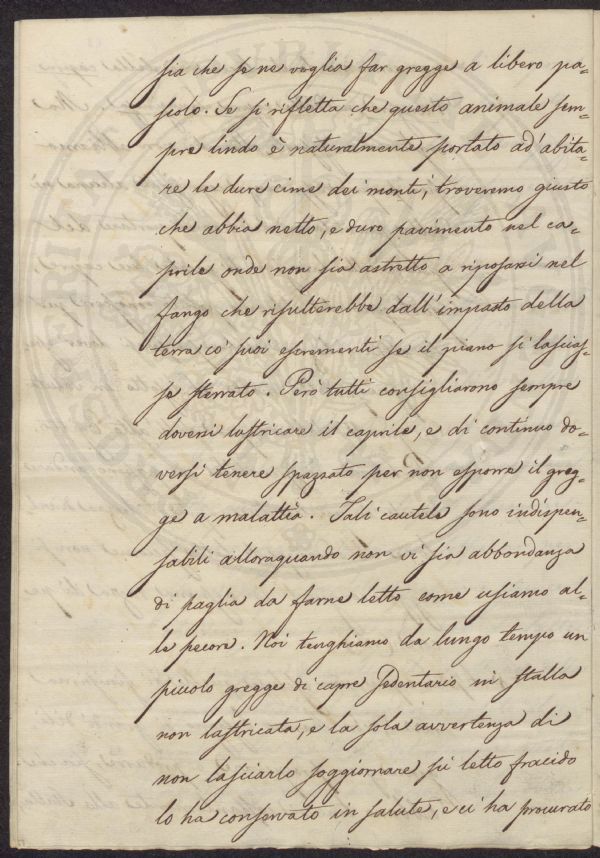 sia che se ne voglia far gregge a libero pa-
scolo. Se si rifletta che questo animale sem-
pre lindo è naturalmente portato ad' abita-
re le dure cime dei monti, troveremo giusto
che abbia netto, e duro pavimento nel ca-
prile onde non sia astretto a riposarsi nel
fango che risulterebbe dall' impasto della
terra co' suoi escrementi se il piano si lascias-
se sterrato. Però tutti consigliarono sempre
doversi lastricare il caprile, e di continuo do-
versi tenere spazzato per non esporre il greg-
ge a malattia. Tali cautele sono indispen-
sabili alloraquando non vi sia abbondanza
di paglia da farne letto come usiamo al-
le pecore. Noi tenghiamo da lungo tempo un
piccolo gregge di capre sedentario in stalla
non lastricata, e la sola avvertenza di
non lasciarlo soggiornare su letto fracido
lo ha conservato in salute, e ci ha procurato